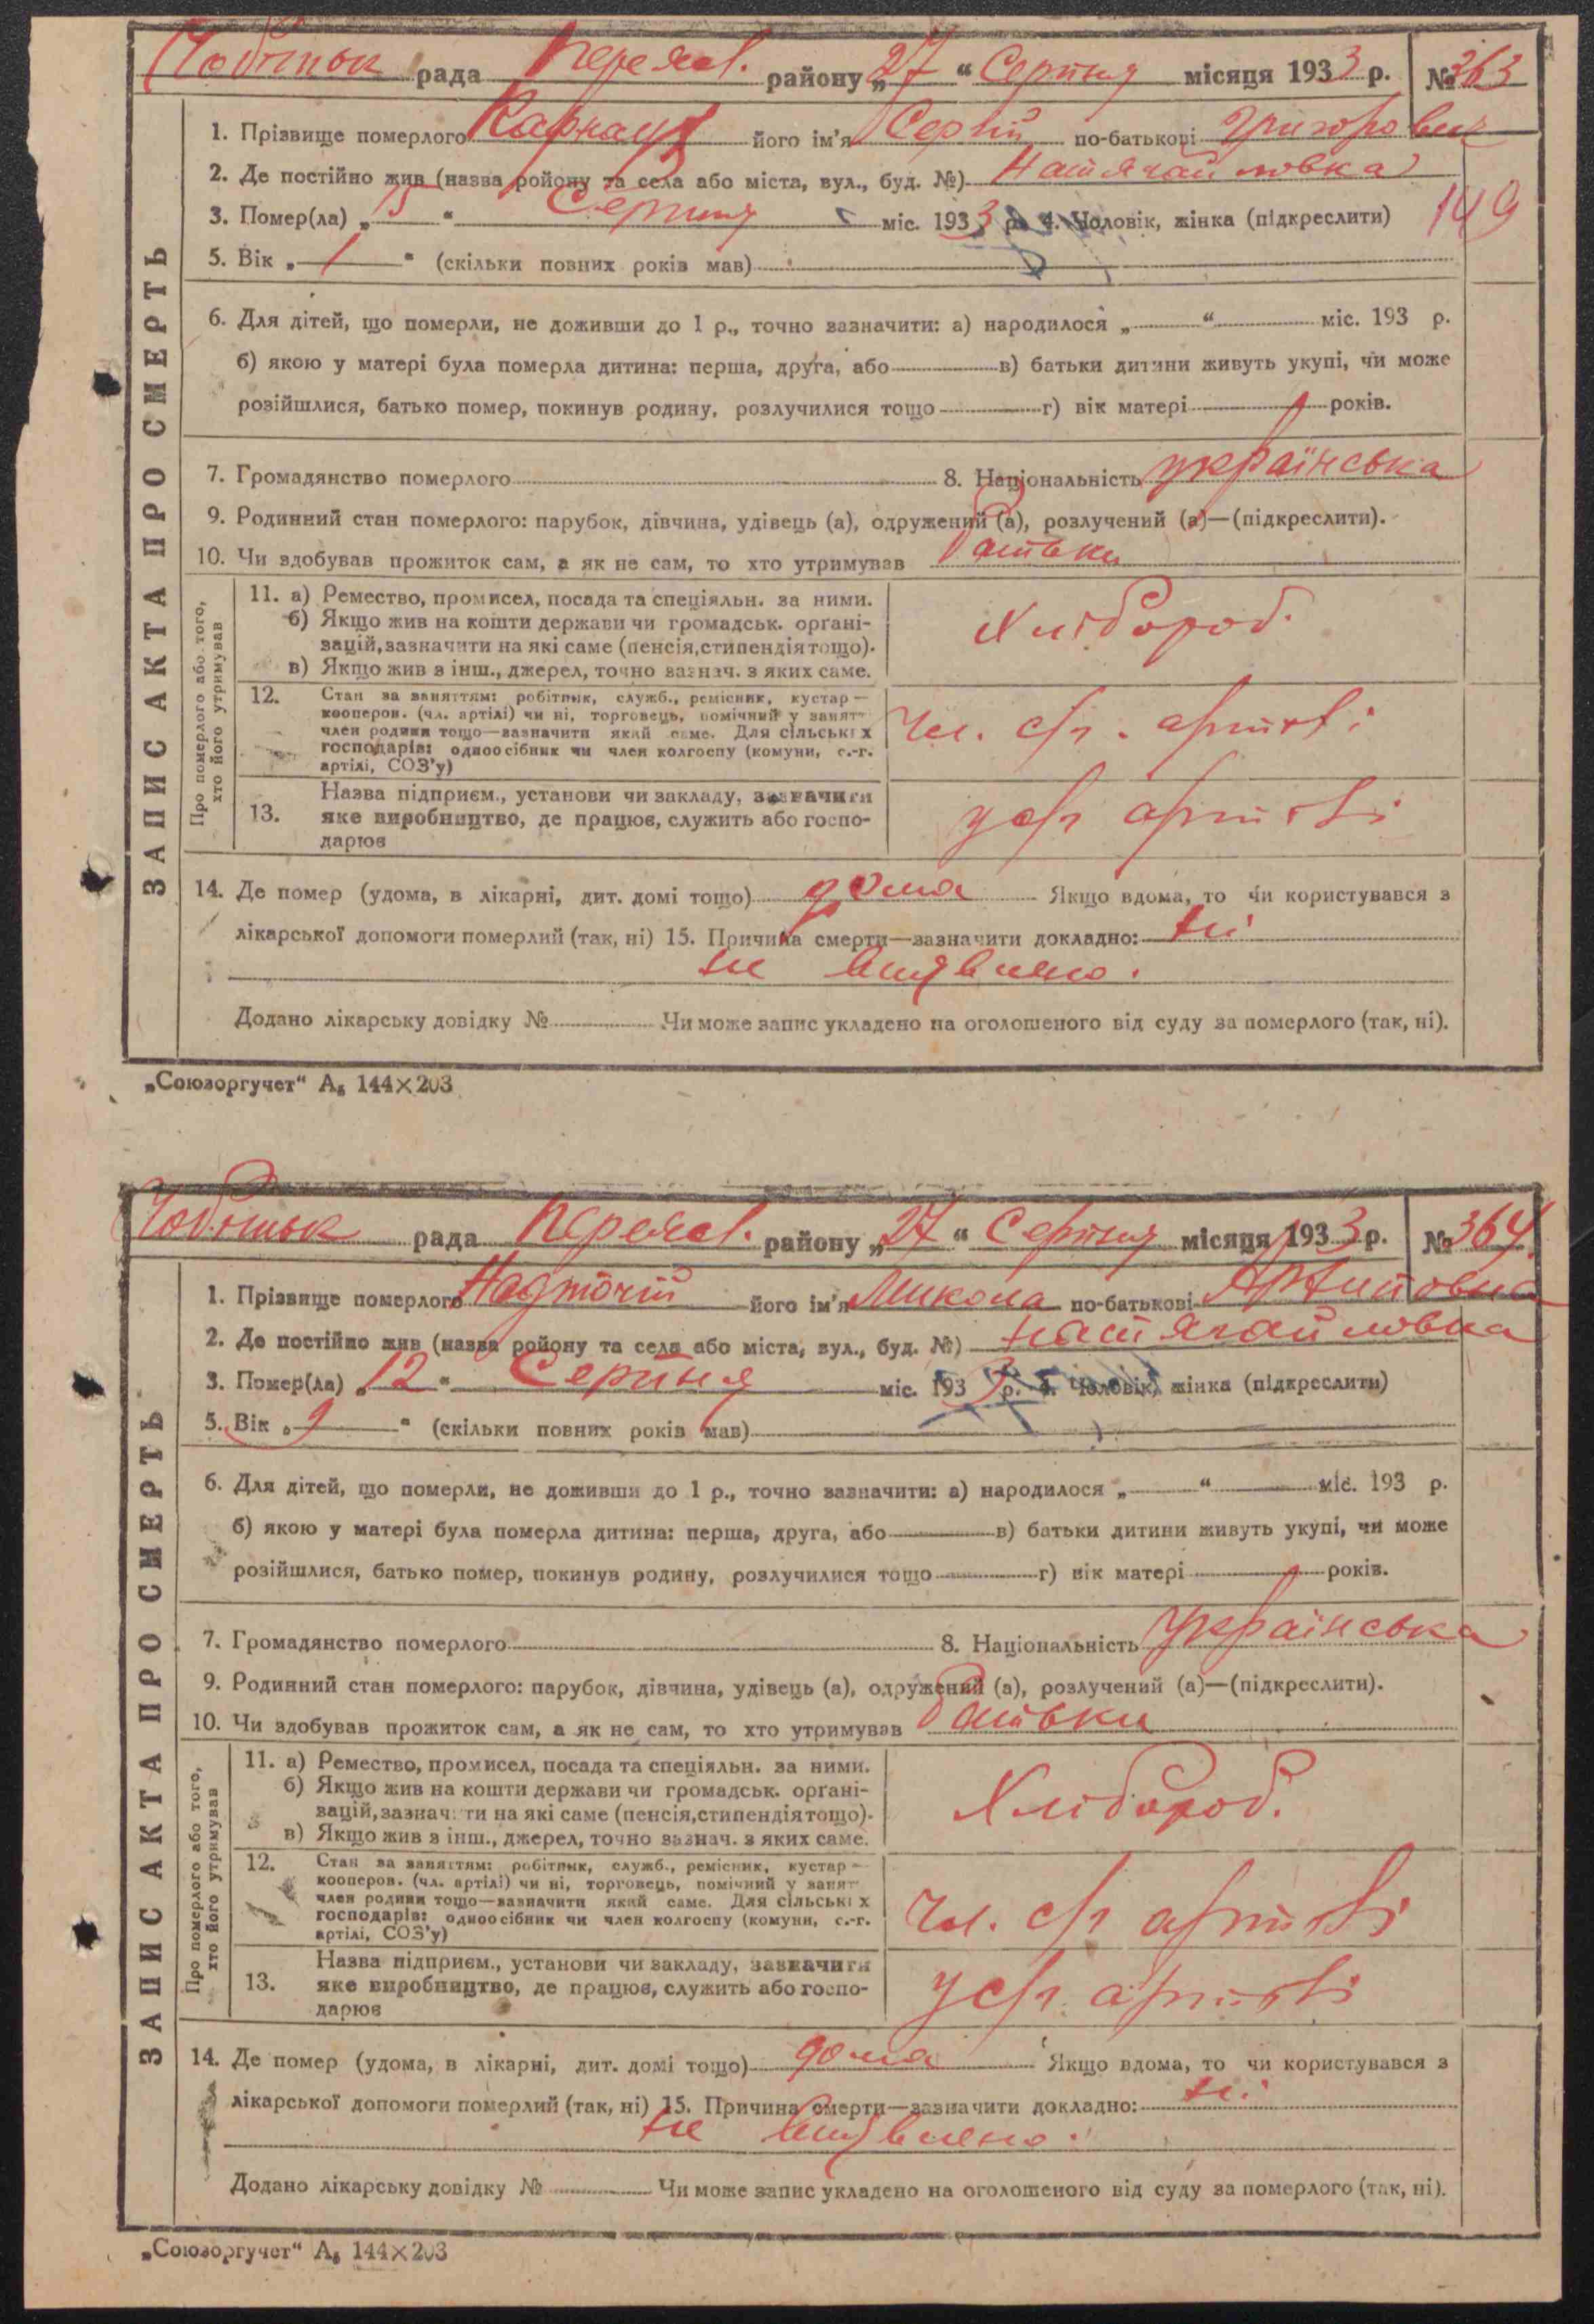 рада Переясл. району „27“ Серпня місяця 1933 р. № 363
1. Прізвище померлого його ім’я Сергій по-батькові Григорович
2. Де постійно жив (назва ройону та села або міста, вул., буд. №)
3. Помер(ла) „ “ Серпня міс. 1933 р. 4. Чоловік, жінка (підкреслити)
149
5. Вік „1“ (скільки повних років мав)
6. Для дітей, що померли, не доживши до 1 р., точно зазначити: а) народилося „ “ міс. 193 р.
б) якою у матері була померла дитина: перша, друга, або в) батьки дитини живуть укупі, чи може
розійшлися, батько помер, покинув родину, розлучилися тощо г) вік матері років.
7. Громадянство померлого 8. Національність українська
9. Родинний стан померлого: парубок, дівчина, удівець (а), одружений (а), розлучений (а)—(підкреслити).
10. Чи здобував прожиток сам, а як не сам, то хто утримував батьки
ЗАПИС АКТА ПРО СМЕРТЬ
Про померлого або того, хто його утримував
11. а) Ремество, промисел, посада та спеціяльн. за ними.
б) Якщо жив на кошти держави чи громадськ. органі-
зацій, зазначити на які саме (пенсія, стипендія тощо).
в) Якщо жив з інш., джерел, точно зазнач. з яких саме.
Хлібороб.
12. Стан за заняттям: робітник, служб., ремісник, кустар—
кооперов. (чл. артілі) чи ні, торговець, помічний у занят
член родини тощо—зазначити який саме. Для сільських
господарів: одноосібник чи член колгоспу (комуни, с.-г.
артілі, СОЗ’у)
Чл. с/г. артілі
13. Назва підприєм., установи чи закладу, зазначити
яке виробництво, де працює, служить або госпо-
дарює
у с/г артілі
14. Де помер (удома, в лікарні, дит. домі тощо) дома Якщо вдома, то чи користувався з
лікарської допомоги померлий (так, ні) 15. Причина смерти—зазначити докладно: ні
не виявлено.
Додано лікарську довідку № Чи може запис укладено на оголошеного від суду за померлого (так, ні).
„Союзоргучет“ А₅ 144×203
рада Переясл. району „27“ Серпня місяця 1933 р. № 364
1. Прізвище померлого Надточій його ім’я Микола по-батькові
2. Де постійно жив (назва ройону та села або міста, вул., буд. №)
3. Помер(ла) „12“ Серпня міс. 1933 р. 4. Чоловік, жінка (підкреслити)
5. Вік „9“ (скільки повних років мав)
6. Для дітей, що померли, не доживши до 1 р., точно зазначити: а) народилося „ “ міс. 193 р.
б) якою у матері була померла дитина: перша, друга, або в) батьки дитини живуть укупі, чи може
розійшлися, батько помер, покинув родину, розлучилися тощо г) вік матері років.
7. Громадянство померлого 8. Національність Українська
9. Родинний стан померлого: парубок, дівчина, удівець (а), одружений (а), розлучений (а)—(підкреслити).
10. Чи здобував прожиток сам, а як не сам, то хто утримував батьки
ЗАПИС АКТА ПРО СМЕРТЬ
Про померлого або того, хто його утримував
11. а) Ремество, промисел, посада та спеціяльн. за ними.
б) Якщо жив на кошти держави чи громадськ. органі-
зацій, зазначити на які саме (пенсія, стипендія тощо).
в) Якщо жив з інш., джерел, точно зазнач. з яких саме.
Хлібороб.
12. Стан за заняттям: робітник, служб., ремісник, кустар—
кооперов. (чл. артілі) чи ні, торговець, помічний у занят
член родини тощо—зазначити який саме. Для сільських
господарів: одноосібник чи член колгоспу (комуни, с.-г.
артілі, СОЗ’у)
Чл. с/г артілі
13. Назва підприєм., установи чи закладу, зазначити
яке виробництво, де працює, служить або госпо-
дарює
у с/г. артілі
14. Де помер (удома, в лікарні, дит. домі тощо) дома Якщо вдома, то чи користувався з
лікарської допомоги померлий (так, ні) 15. Причина смерти—зазначити докладно: ні
не виявлено.
Додано лікарську довідку № Чи може запис укладено на оголошеного від суду за померлого (так, ні).
„Союзоргучет“ А₅ 144×203